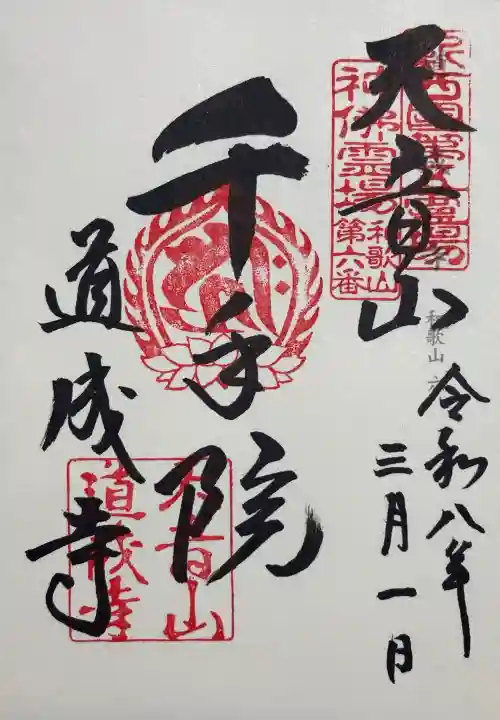 天音山
千手院
道成寺
令和八年
三月一日
神佛霊場
和歌山
第六番
和歌山 六
天音山
道成寺